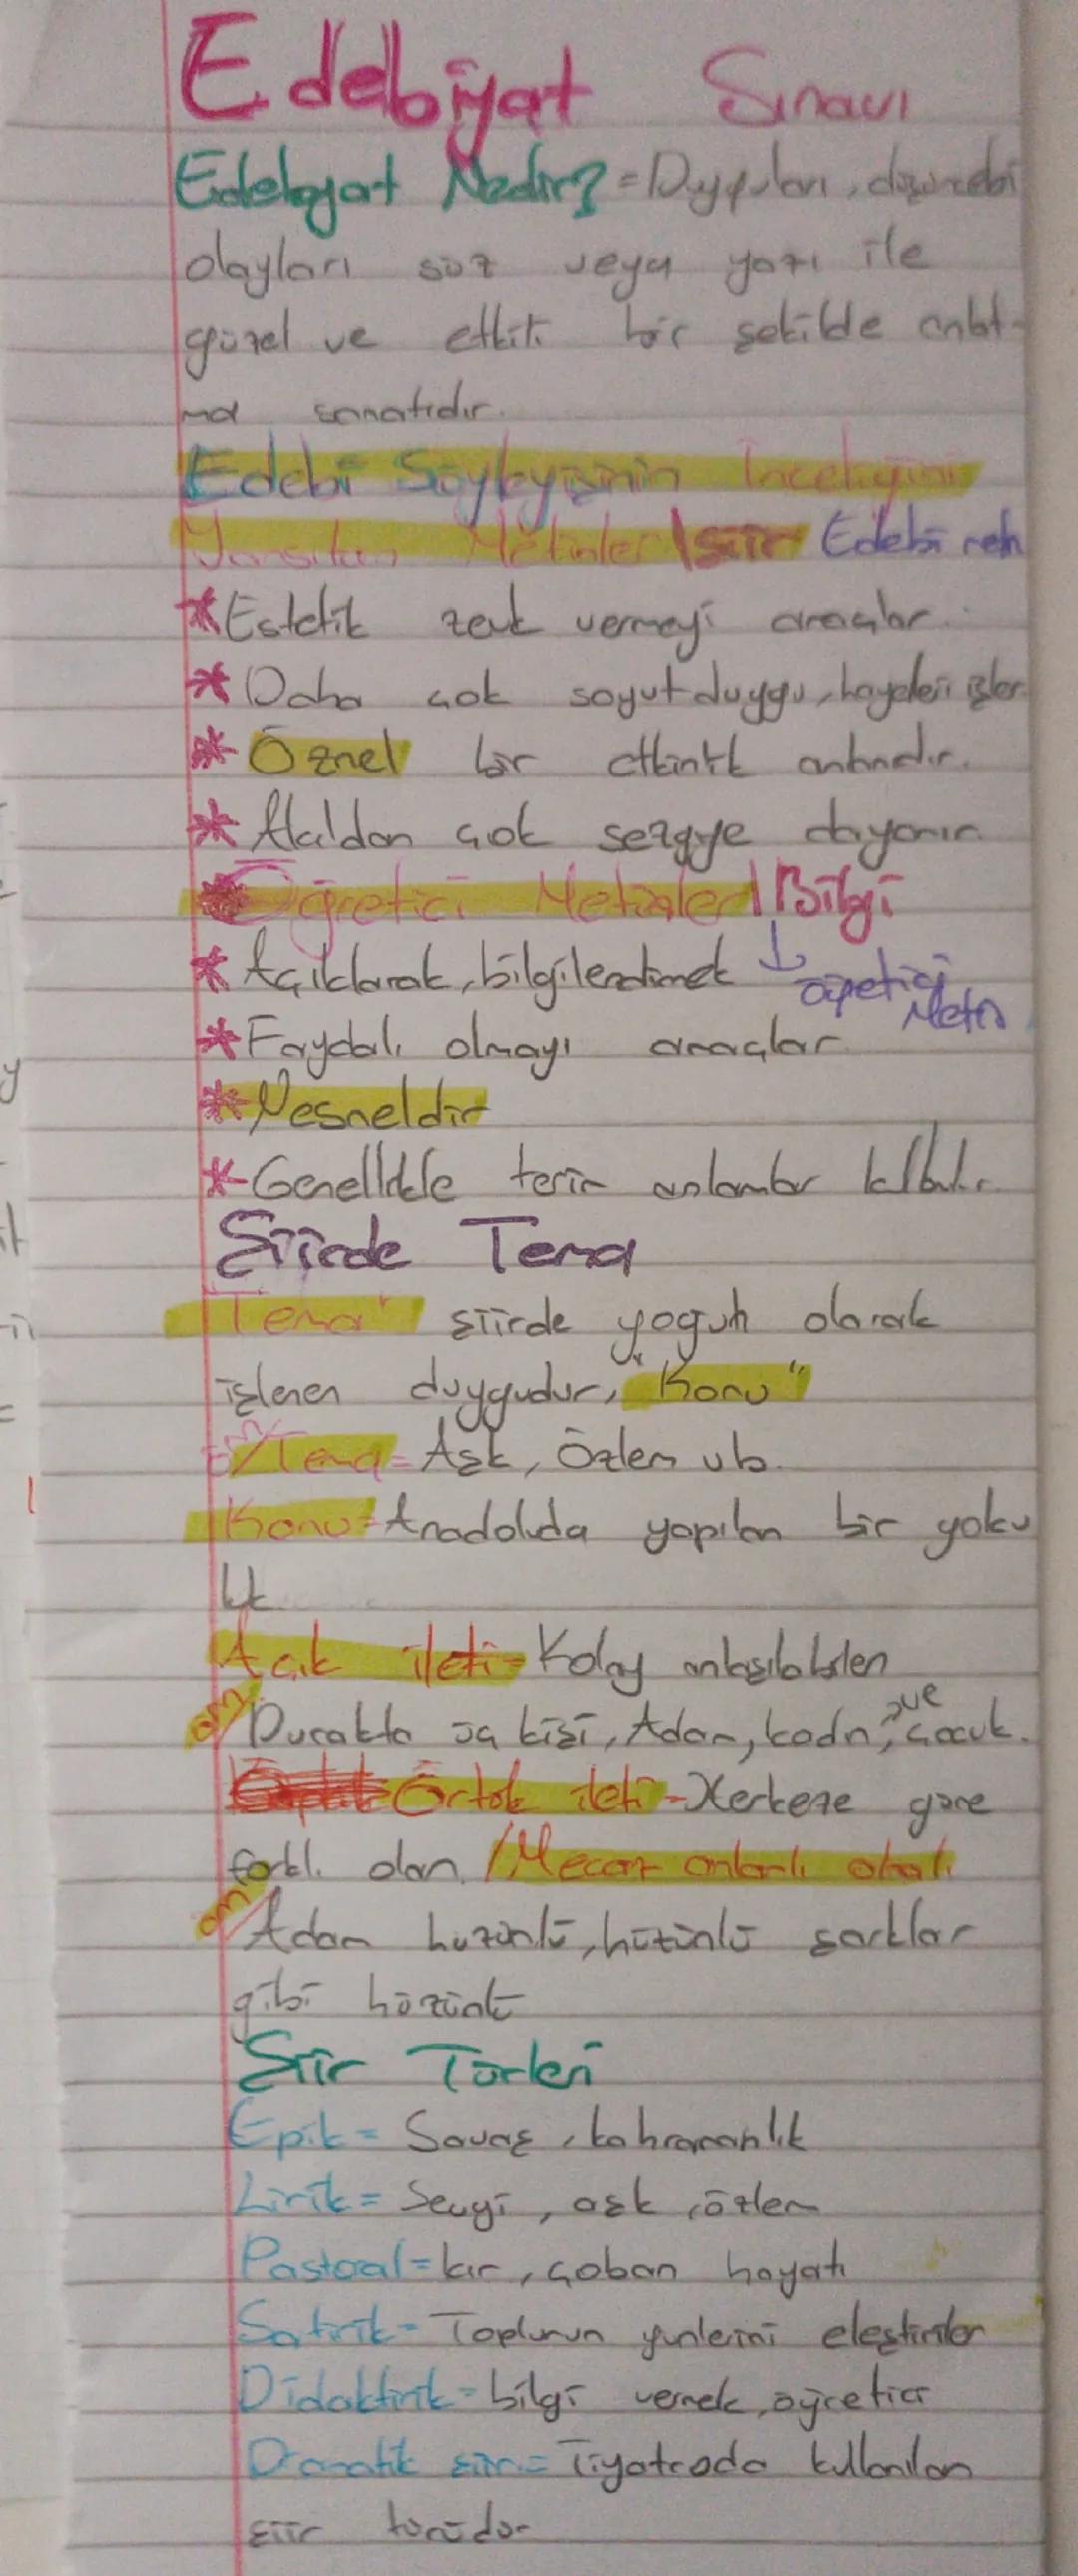 Edebiyat Sınavı
Edebiyat Nedir? = Duyguları, düşünceleri
olayları söz veya yazı ile
güzel ve etkili bir şekilde anlat-
ma sanatıdır.
Edebi Söyleyişinin İnceliğini
Yansıtan Metinler | Şiir Edebi
* Estetik zevk vermeyi amaçlar.
* Daha çok soyut duygu, hayaleri işler
* Öznel bir etkinlik anlamdır.
* Akıldan çok sezgiye dayanır
* Öğretici Metinler | Bilgi
* Açıklarak, bilgilendirmek ↓ öğretici
Metin
* Faydalı olmayı amaçlar
* Nesneldir
* Genellikle terim anlamlar kullanılır
Şiirde Tema
"Tema" şiirde yoğun olarak
işlenen duygudur, "Konu"
ör/Tema = Aşk, Özlem vb.
Konu = Anadoluda yapılan bir yolcu
luk
Açık ileti = Kolay anlaşılabilen
ör/ Durakta üç kişi, Adam, kadın, ve çocuk.
Örtük ileti - Herkeze göre
farklı olan / Mecaz anlamlı olmalı
ör/ Adam hüzünlü, hüzünlü şarkılar
gibi hüzünlü
Şiir Türleri
Epik = Savaş, kahramanlık
Lirik = Sevgi, aşk, özlem
Pastoral = kır, çoban hayatı
Satirik = Toplumun yönlerini eleştirirler
Didaktirik = bilgi vermek, öğretici
Dramatik şiir = Tiyatroda kullanılan
şiir türüdür